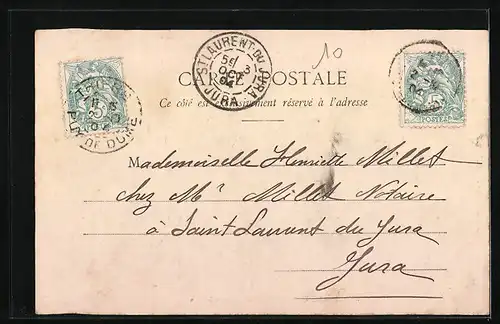 10
ST LAURENT-DU-JURA
3
OCT
JURA
CARTE POSTALE
Ce côté est exclusivement réservé à l'adresse
PUY-DE-DÔME
POSTES
Mademoiselle Henriette Millet
chez Mr Millet Notaire
à Saint Laurent du Jura
Jura